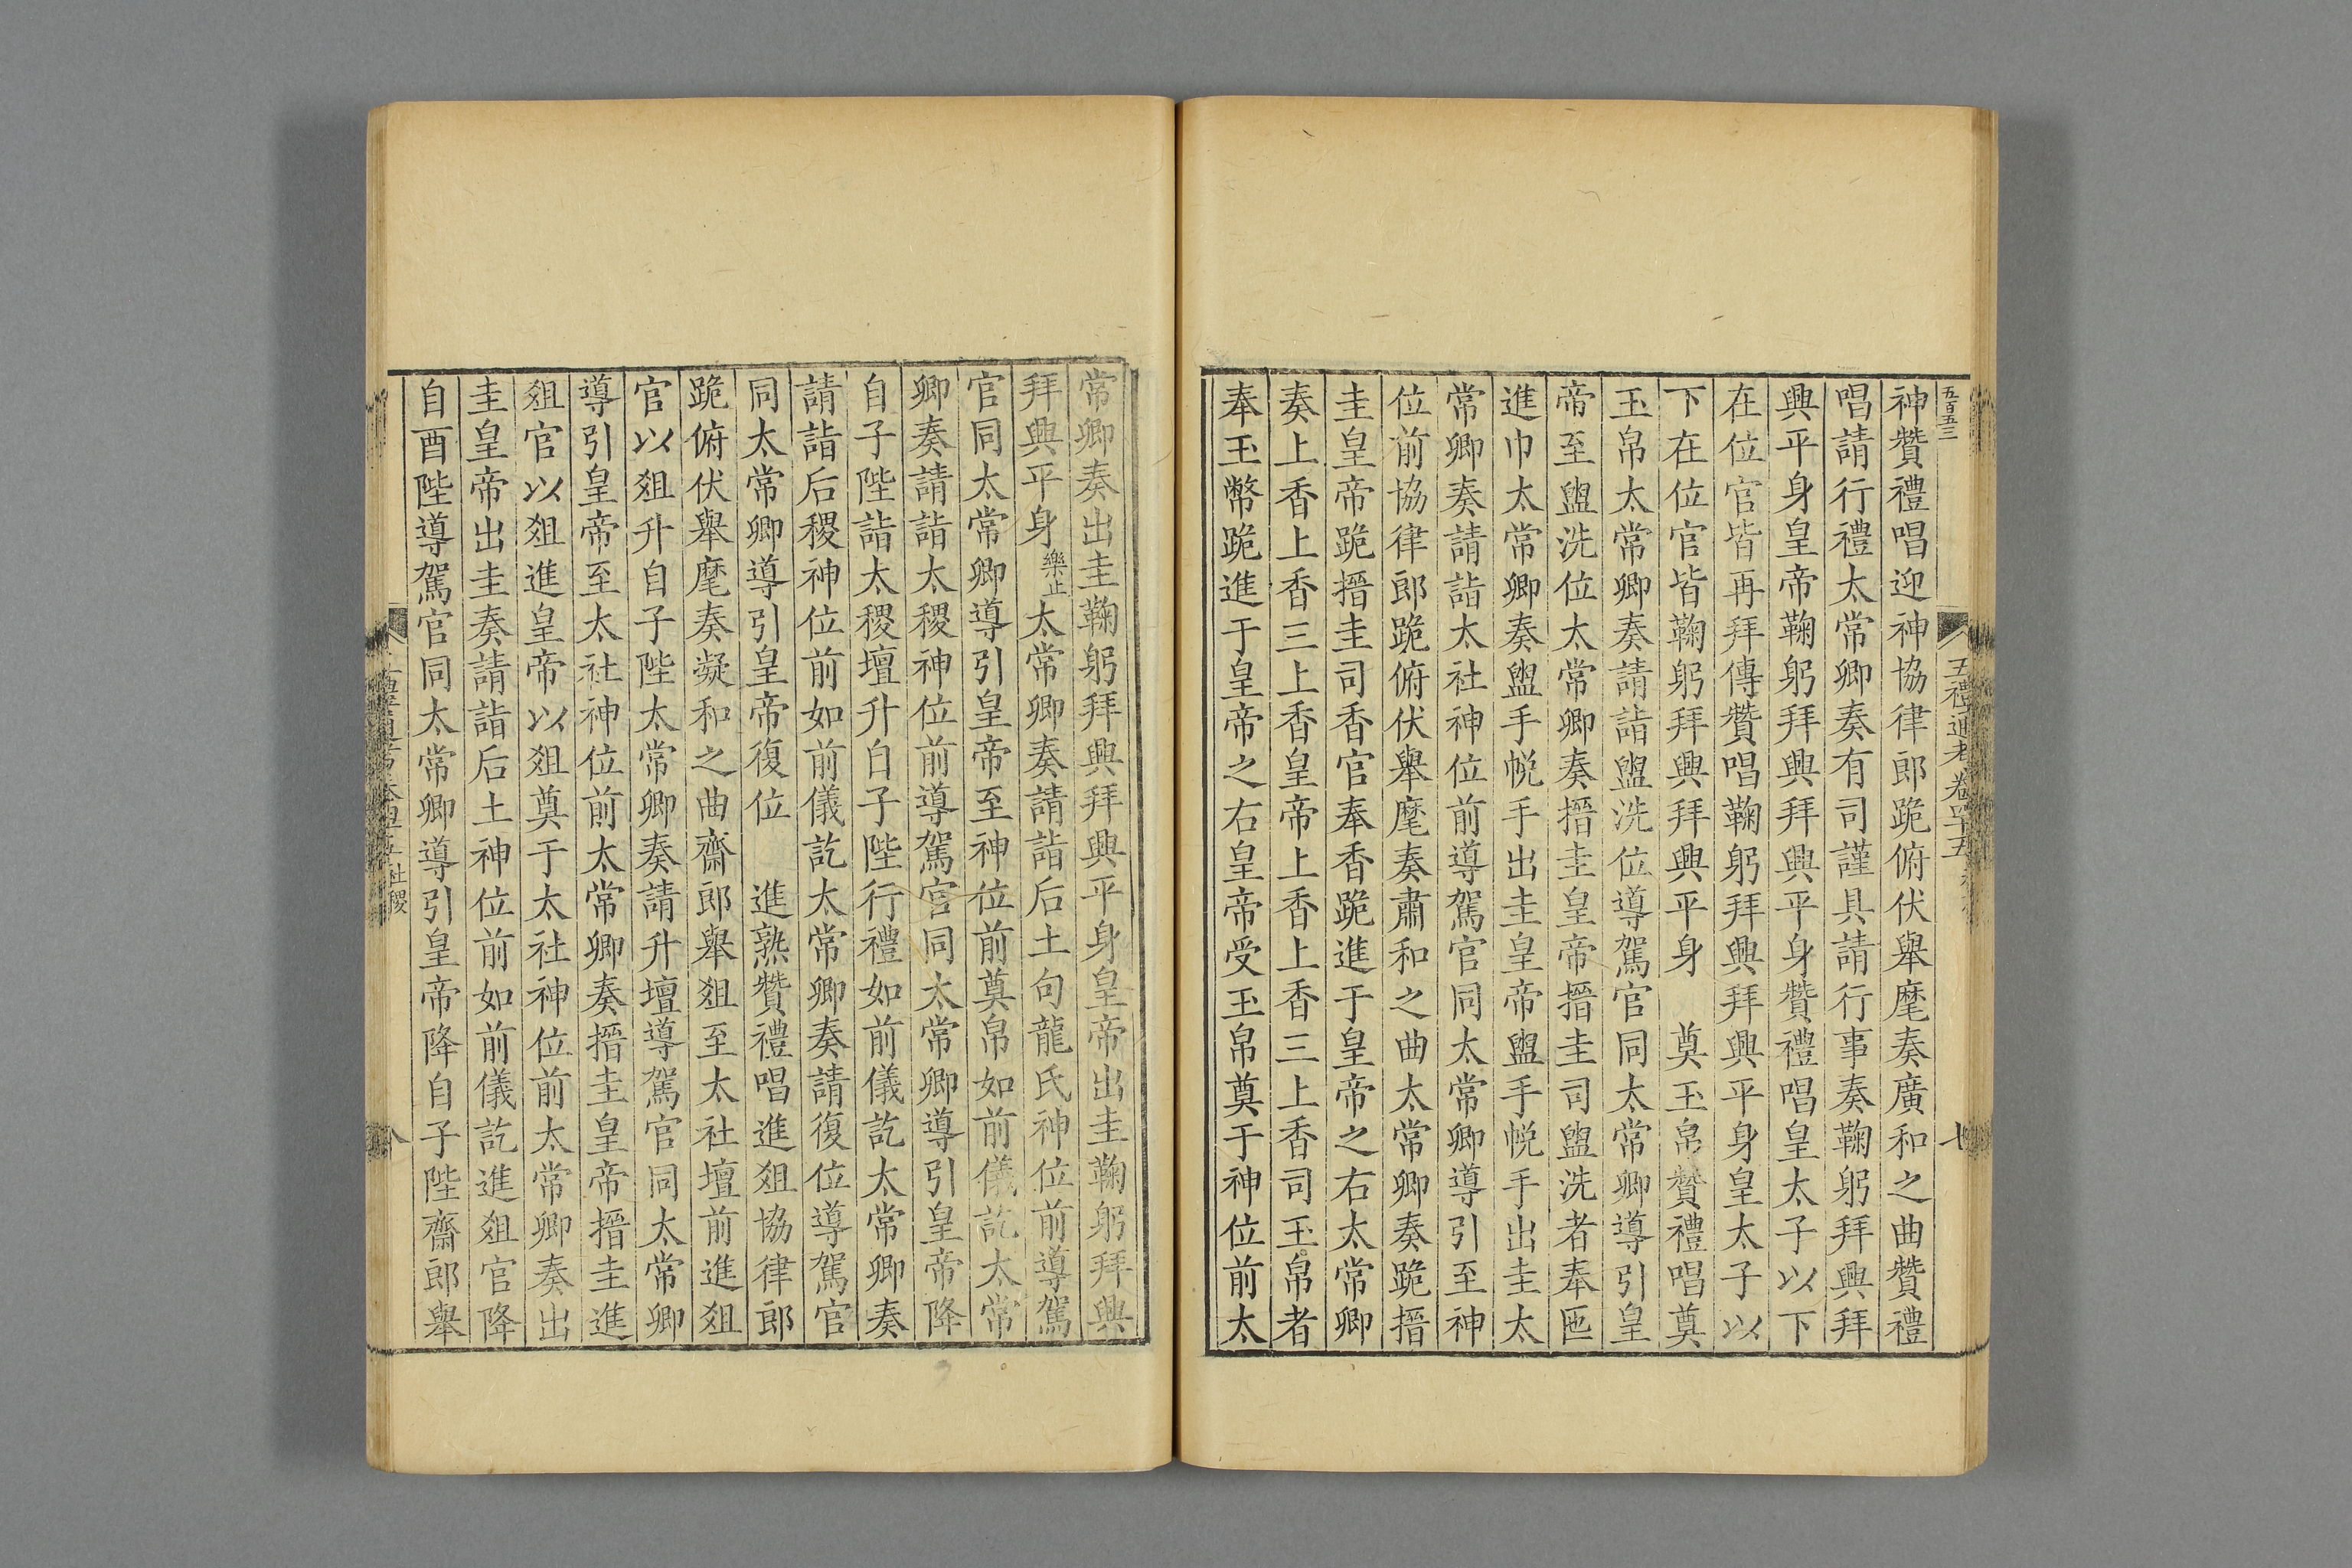 五百五三
五禮通考卷四十五
七
神贊禮唱迎神協律郎跪俯伏舉麾奏廣和之曲贊禮
唱請行禮太常卿奏有司謹具請行事奏鞠躬拜興拜
興平身皇帝鞠躬拜興拜興平身贊禮唱皇太子以下
在位官皆再拜傳贊唱鞠躬拜興拜興平身皇太子以
下在位官皆鞠躬拜興拜興平身　奠玉帛贊禮唱奠
玉帛太常卿奏請詣盥洗位導駕官同太常卿導引皇
帝至盥洗位太常卿奏搢圭皇帝搢圭司盥洗者奉匜
進巾太常卿奏盥手帨手出圭皇帝盥手帨手出圭太
常卿奏請詣太社神位前導駕官同太常卿導引至神
位前協律郎跪俯伏舉麾奏肅和之曲太常卿奏跪搢
圭皇帝跪搢圭司香官奉香跪進于皇帝之右太常卿
奏上香上香三上香皇帝上香上香三上香司玉帛者
奉玉幣跪進于皇帝之右皇帝受玉帛奠于神位前太
常卿奏出圭鞠躬拜興拜興平身皇帝出圭鞠躬拜興
拜興平身樂止太常卿奏請詣后土句龍氏神位前導駕
官同太常卿導引皇帝至神位前奠帛如前儀訖太常
卿奏請詣太稷神位前導駕官同太常卿導引皇帝降
自子陛詣太稷壇升自子陛行禮如前儀訖太常卿奏
請詣后稷神位前如前儀訖太常卿奏請復位導駕官
同太常卿導引皇帝復位　進熟贊禮唱進俎協律郎
跪俯伏舉麾奏凝和之曲齋郎舉俎至太社壇前進俎
官以俎升自子陛太常卿奏請升壇導駕官同太常卿
導引皇帝至太社神位前太常卿奏搢圭皇帝搢圭進
俎官以俎進皇帝以俎奠于太社神位前太常卿奏出
圭皇帝出圭奏請詣后土神位前如前儀訖進俎官降
自酉陛導駕官同太常卿導引皇帝降自子陛齋郎舉
社稷
八